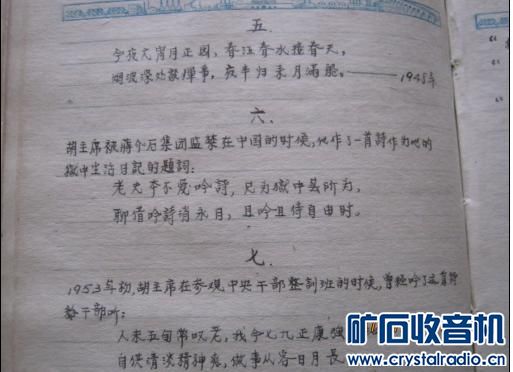 五.
今夜元宵月正圆，春江春水接春天，
烟波深处談軍事，夜半归来月滿船。——1948年
六.
胡主席被蔣介石集团监禁在中国的时候，他作了一首詩作为他的
獄中生活日記的题詞：
老夫本不爱吟詩，只为獄中無所为，
聊借吟詩消永日，且吟且待自由时。
七.
1953年初，胡主席在参观中央干部整訓班的时候，曾经吟了这首詩
给干部听：
人未五旬常叹老，我今七九正康强
自供清淡精神爽，做事从容日月長
矿石收音机
www.crystalradio.cn